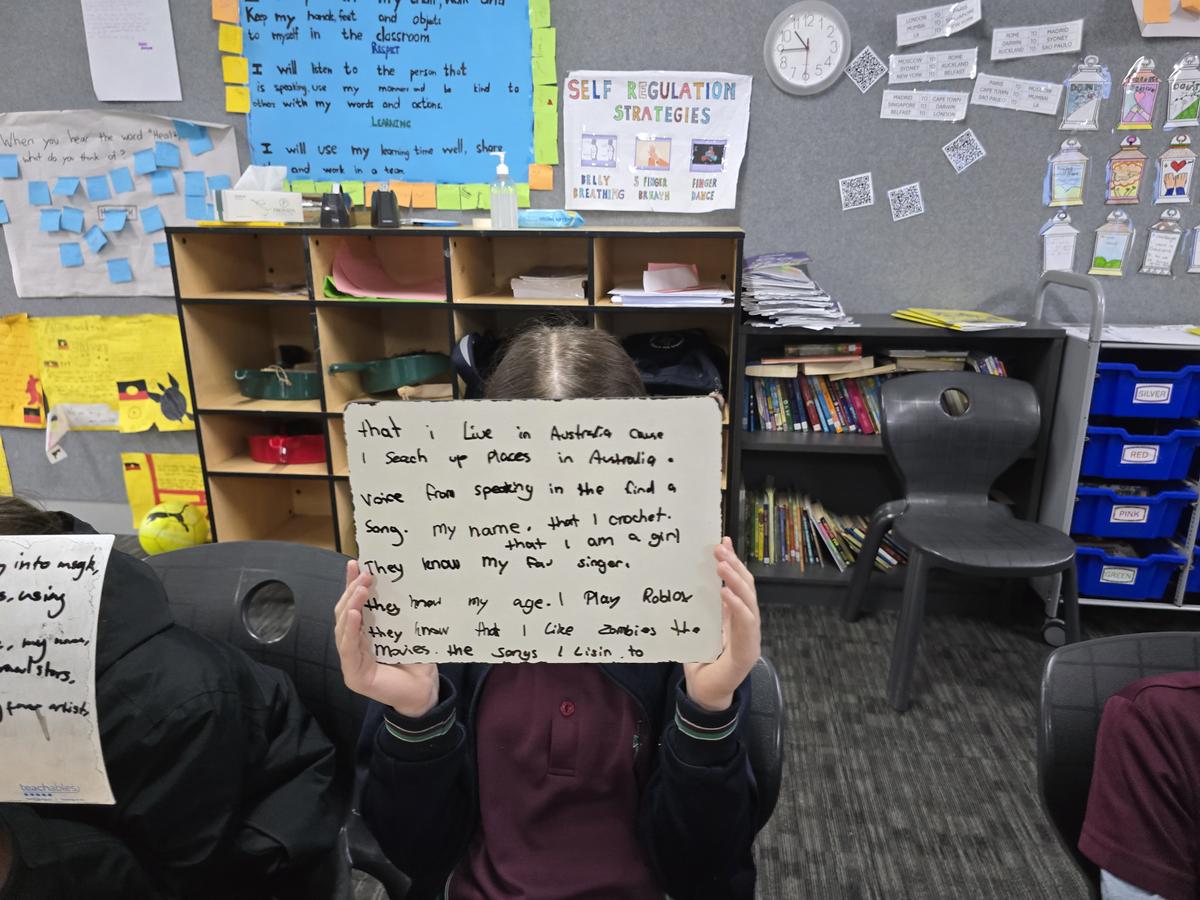 Keep my hands, feet and objects
to myself in the classroom
RESPECT
I will listen to the person that
is speaking, use my manners and be kind to
others with my words and actions.
LEARNING
I will use my learning time well, share
and work in a team
When you hear the word "Heal
what do you think of?
SELF REGULATION
STRATEGIES
BELLY
BREATHING
5 FINGER
BREATH
FINGER
DANCE
LONDON TO SINGAPORE
MUMBAI TO SYDNEY
ROME TO MADRID
DARWIN TO SYDNEY
AUCKLAND TO SAO PAULO
MOSCOW TO ROME
SYDNEY TO AUCKLAND
NEW YORK TO BELFAST
MADRID TO CAPE TOWN
SINGAPORE TO DARWIN
BELFAST TO LONDON
PARIS TO SINGAPORE
CAPE TOWN TO MUMBAI
SAO PAULO TO LA
that i Live in Australia cause
I seach up Places in Australia.
voice from speaking in the find a
song. my name. that I crochet.
that I am a girl
They know my fav singer.
they know my age. I Play Roblox
they know that I Like Zombies the
Movies. the songs I Lisin to
SILVER
RED
PINK
GREEN
into msgk,
using
my name,
teachables